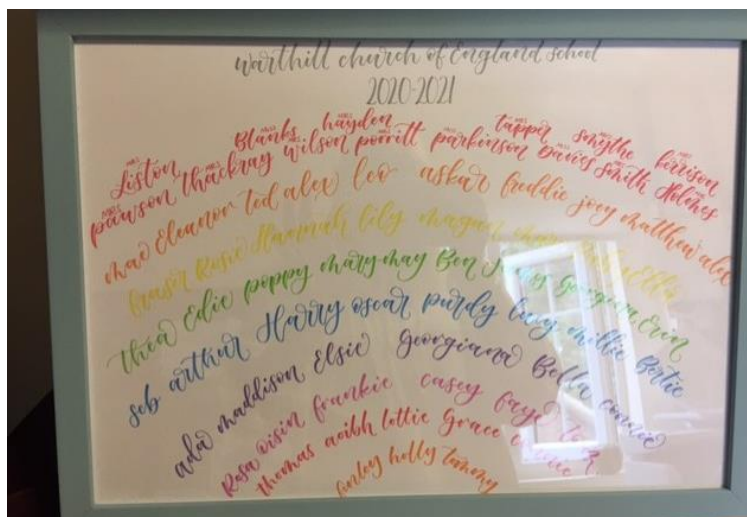 warthill church of England school
2020-2021
Liston Blanks hayden tapper smythe kerrison
pawson thackray wilson porritt parkinson Davies Smith Holmes
mae Eleanor Ted alex leo askar freddie joey matthew alex
fraser Rosie Hannah lily magan Ella
thea Edie poppy marymay Ben Georgina Erin
seb arthur Harry oscar purdy lucy millie Bertie
ada maddison Elsie Georgiana Bella connie
Rosa oisin frankie casey faye
thomas aoibh lottie Grace
finley holly tommy